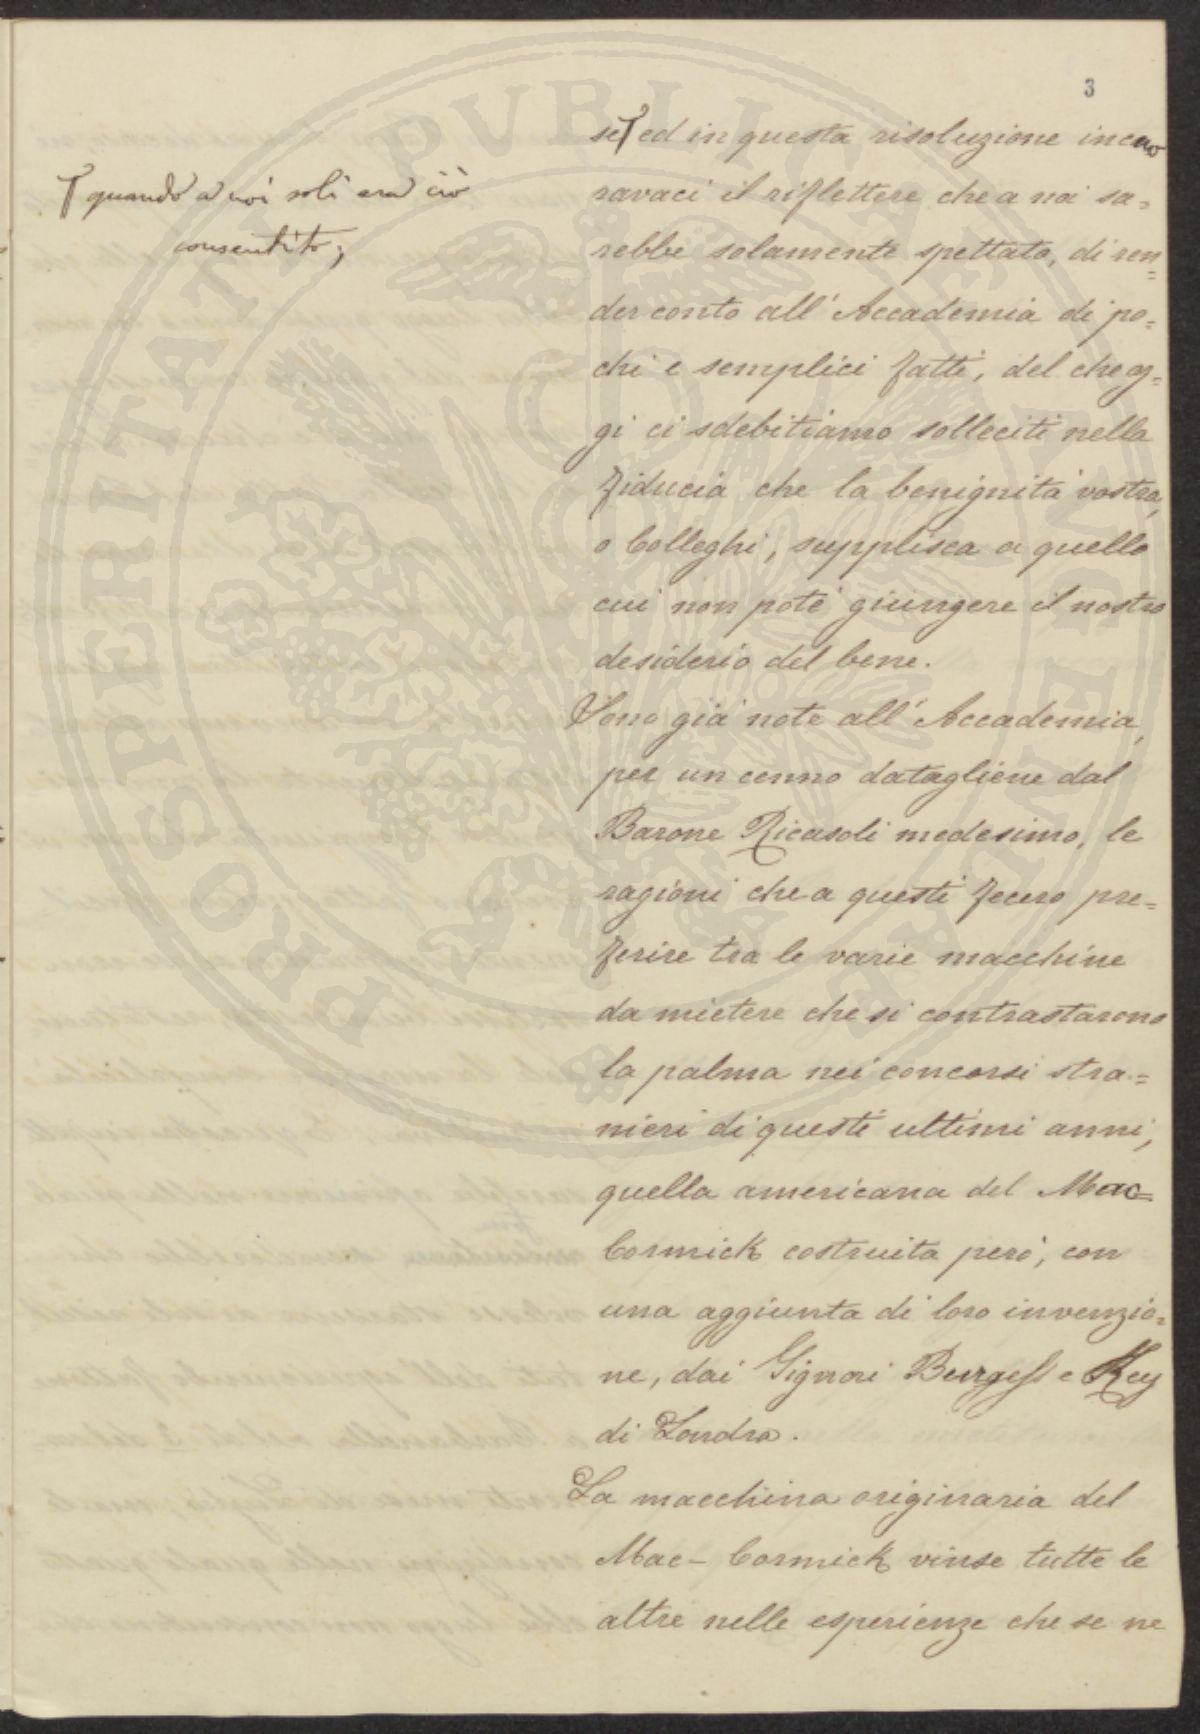 3
se⌈ ed in questa risoluzione incuo
ravaci il riflettere che a noi sa=
rebbe solamente spettato, di ren=
der conto all' Accademia di po=
chi e semplici fatti, del che og=
gi ci sdebitiamo solleciti nella
fiducia che la benignità vostra,
o Colleghi, supplisca a quello
cui non potè giungere il nostro
desiderio del bene.
Sono già note all' Accademia,
per un cenno datagliene dal
Barone Ricasoli medesimo, le
ragioni che a questi fecero pre=
ferire tra le varie macchine
da mietere che si contrastarono
la palma nei concorsi stra=
nieri di questi ultimi anni,
quella americana del Mac=
Cormick costruita però, con
una aggiunta di loro invenzio=
ne, dai Signori Burgess e Key
di Londra.
La macchina originaria del
Mac-Cormick vinse tutte le
altre nelle esperienze che se ne
⌈ quando a noi soli era ciò
consentito;
PROSPERITATI PVBLICAE AVGENDAE